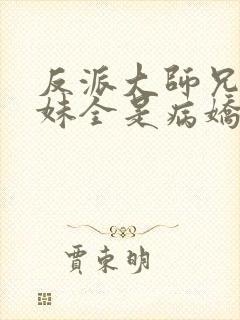 反派大師兄
妹全是病嬌
賈東明